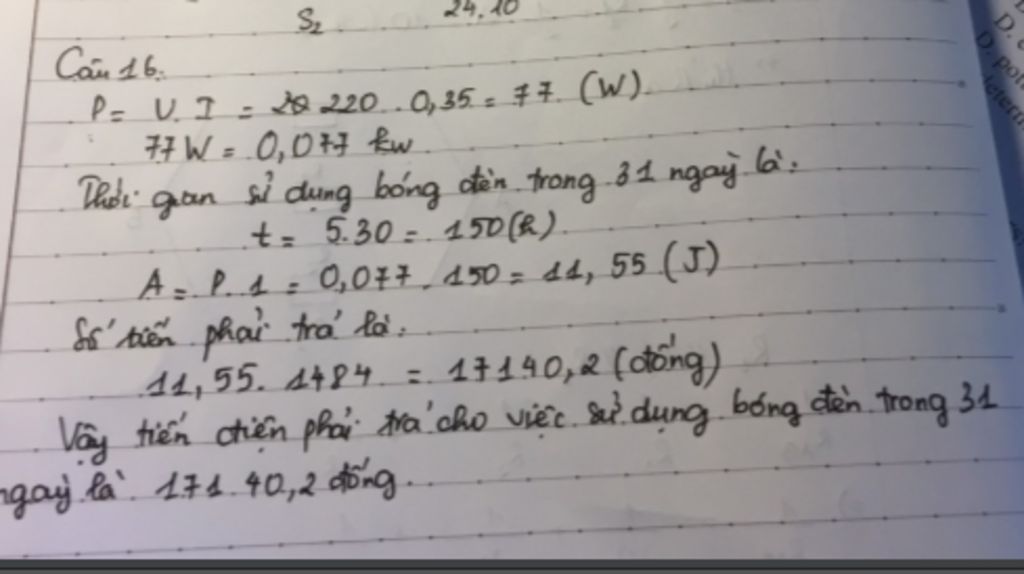 S₂ 24.10
Câu 16.
P = U. I = 220 . 0,35 = 77 (W)
77W = 0,077 kw
Thời gian sử dụng bóng đèn trong 31 ngày là:
t = 5.30 = 150(h)
A = P. 1 = 0,077 . 150 = 11,55 (J)
Số tiền phải trả là:
11,55. 1484 = 17140,2 (đồng)
Vậy tiền điện phải trả cho việc sử dụng bóng đèn trong 31
ngày là 171 40,2 đồng.
D.
D.